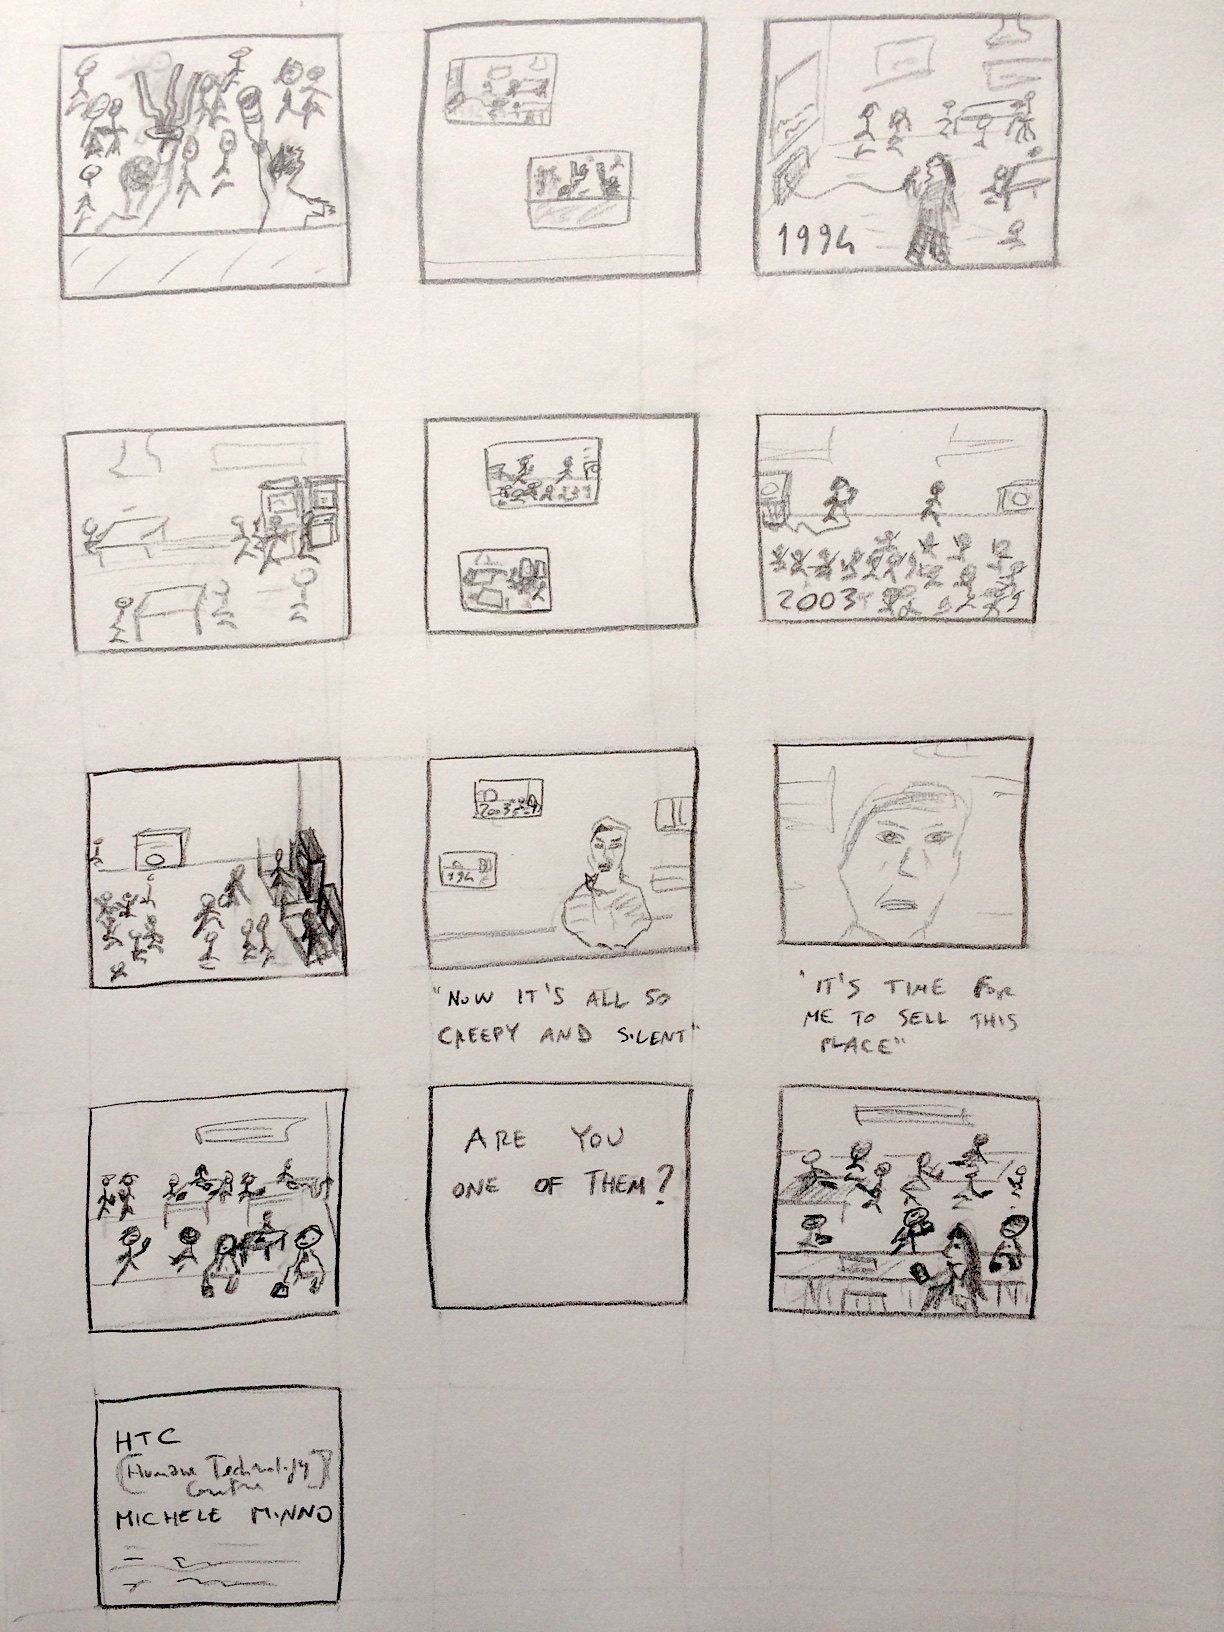 1994
2003
2003
194
"NOW IT'S ALL SO
CREEPY AND SILENT"
"IT'S TIME FOR
ME TO SELL THIS
PLACE"
ARE YOU
ONE OF THEM?
HTC
(Humane Technology
Centre
MICHELE MINNO